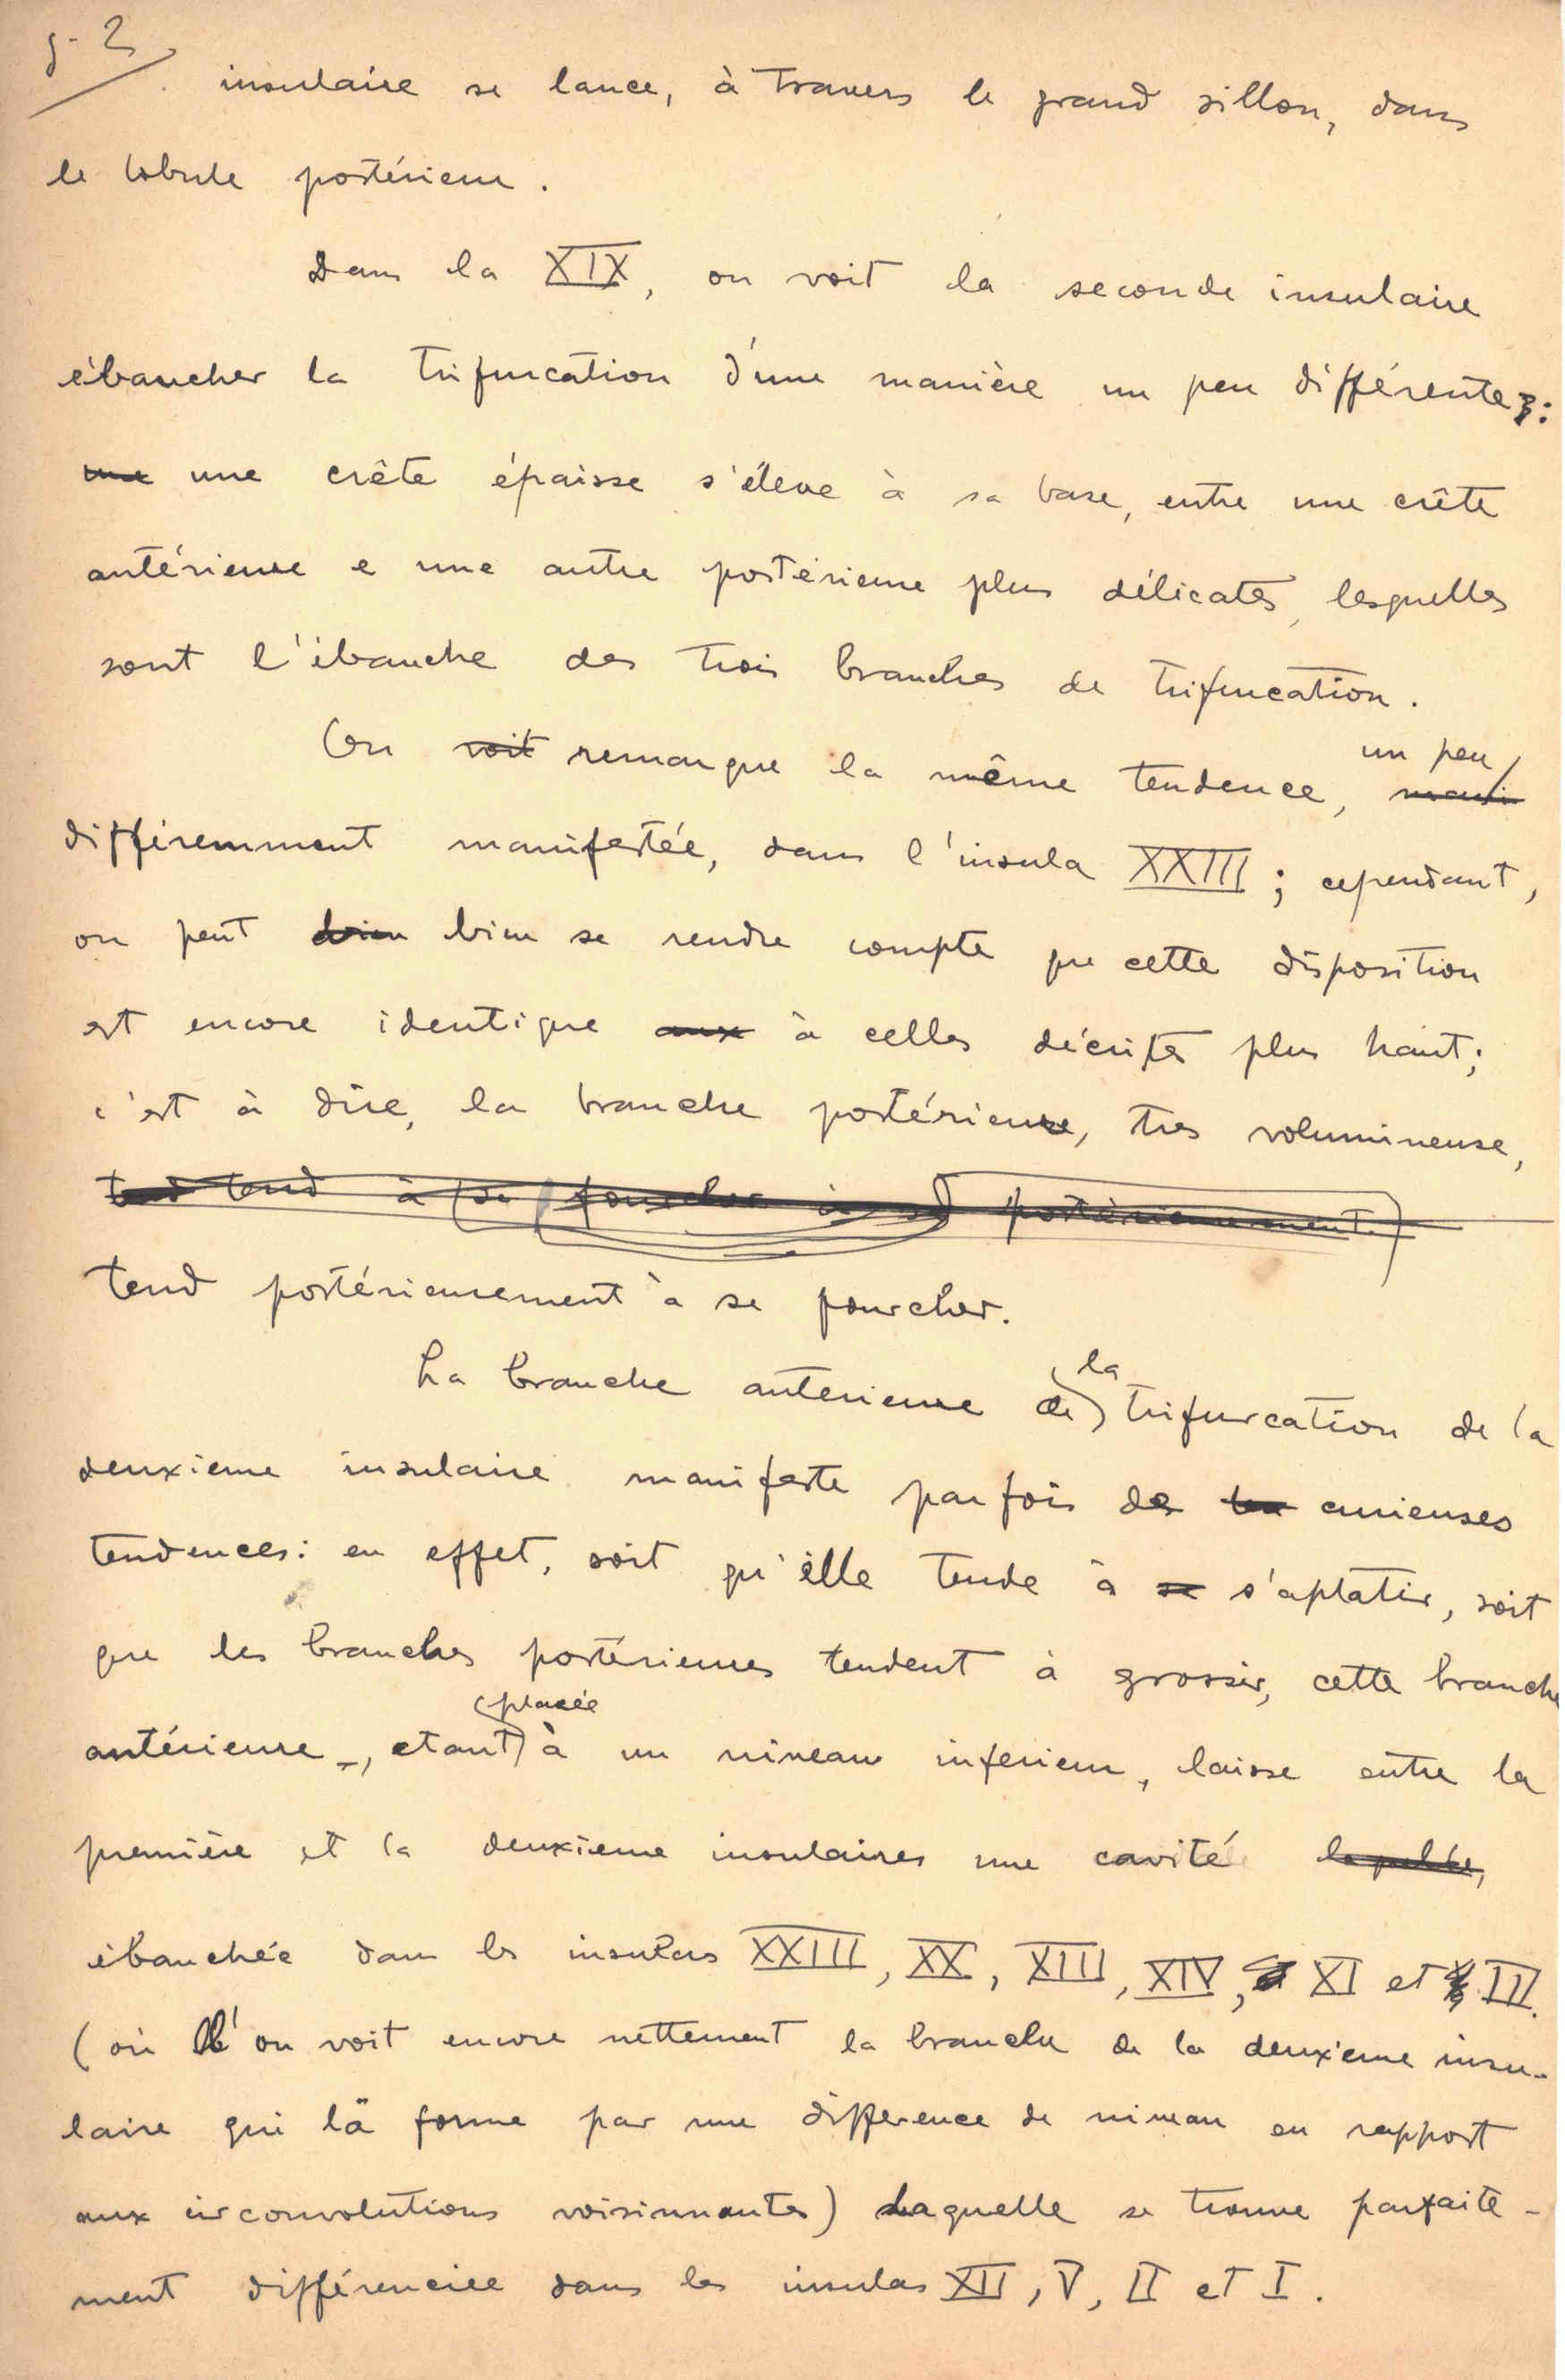 g-2
insulaire se lance, à travers le grand sillon, dans
le lobule postérieur.
Dans la XIX, on voit la seconde insulaire
ébaucher la trifurcation d'une manière un peu différente:
une une crête épaisse s'éleve à sa base, entre une crête
antérieure e une autre postérieure plus délicates, lesquelles
sont l'ébauche des trois branches de trifurcation.
un peu
On voit remarque la même tendence,
différemment manifestée, dans l'insula XXIII; cependant,
on peut bien bien se rendre compte que cette disposition
est encore identique aux à celles décrites plus haut;
c'est à dire, la branche postérieure, tres volumineuse,
tend tend à se fourcher postérieurement
tend postérieurement à se fourcher.
la
La branche anterieure de trifurcation de la
deuxieme insulaire manifeste parfois des curieuses
tendences: en effet, soit qu'elle tende à se s'aplatir, soit
que les branches postérieures tendent à grossir, cette branche
placée
antérieure, etant à un niveau inferieur, laisse entre la
première et la deuxieme insulaires une cavité laquelle,
ébauchée dans les insulas XXIII, XX, XIII, XIV, XI et III.
(où l'on voit encore nettement la branche de la deuxieme insu-
laire qui la forme par une différence de niveau en rapport
aux circonvolutions voisinnantes) laquelle se trouve parfaite-
ment différenciée dans les insulas XII, V, II et I.